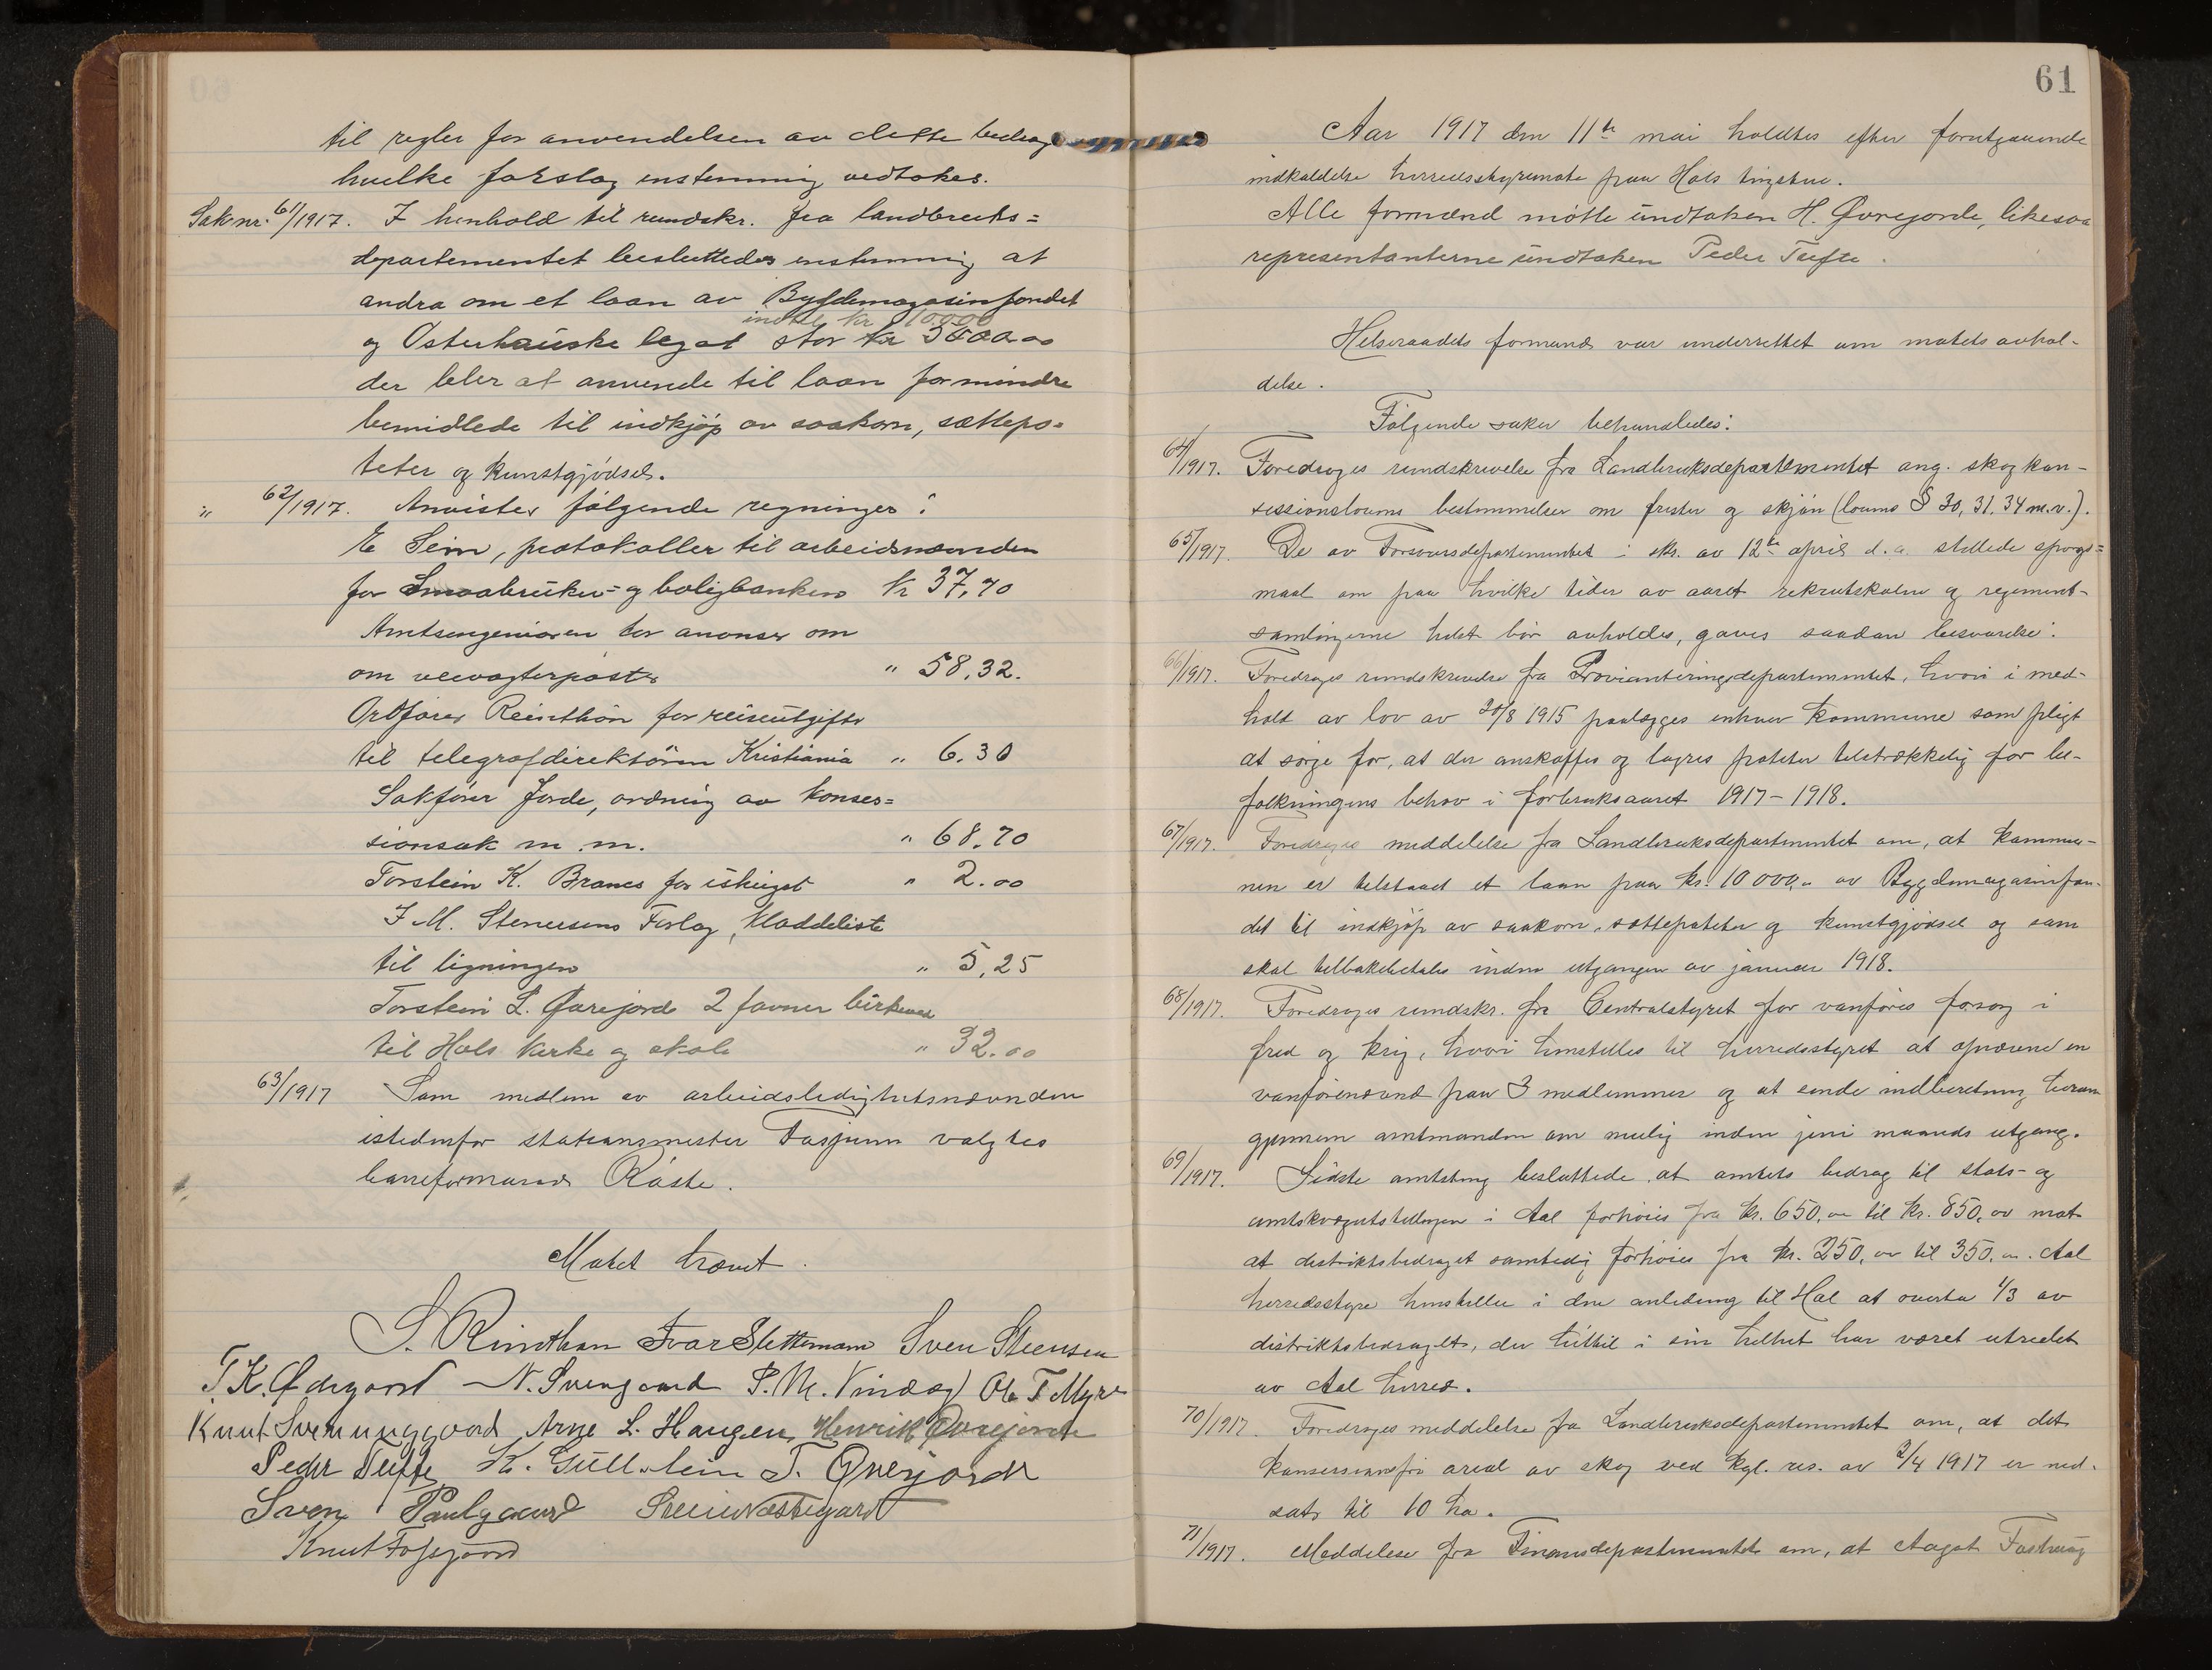 til regler for anvendelsen av dette bedrag
hvilke forslag enstemmig vedtokes.
Sak nr. 61/1917. I henhold til rundskr. fra landbruks=
departementet besluttedes enstemmig at
andra om et laan av Bygdemagasinfondet
indtil kr 10.000
og Osterhauske legat stor kr
der beler at anvende til laan for mindre
bemidlede til indkjøp av saakorn, sættepo=
teter og kunstgjødsel.
" 62/1917. Anvistes følgende regninger:
E Sem, protokoller til arbeidsnævnden
for Smaabruker- og boligbanken kr 37,70
Amtsingeniøren for anonser om
om veivogterposter " 58,32.
Ordfører Reinthon for reiseutgifter
til telegrafdirektøren Kristiania " 6.30
Sakfører Jorde, ordning av konses=
sionsak m.m. " 68.70
Torstein K. Branes for " 2.00
J. M. Stenersens Forlag, Kladdeliste
til ligningen " 5,25
Torstein L. Øvrejorde 2 favner birkeved
til Hols kirke og skole " 32.00
63/1917 Som medlem av arbeidsledighetsnævnden
istedenfor stationsmester valgtes
baneformand Raaste.
Møtet hævet.
S. Rinthan Ivar Slettemoen Sven Steensen
T. K. Ødegaard N. Svengaard P. M. Vindeg Ole T Myre
Knut Sveinunggaard Arne L. Haugen Henrik Øvrejorde
Peder Tufte K. Gullstein T. Øvrejorde
Sven Paulgaard Svein Vestegard
Knut Fossgaard
61
Aar 1917 den 11te mai holdtes efter forutgaaende
indkaldelse herredsstyremøte paa Hols tingstue.
Alle formænd møtte undtaken H. Øvrejorde, likesaa
representanterne undtaken Peder Tufte.
Helseraadets formand var underrettet om møtets avhol-
delse.
Følgende saker behandledes:
64/1917. Foredroges rundskrivelse fra Landbruksdepartementet ang. skogkon-
sessionslovens bestemmelser om frister og skjøn (lovens § 30, 31, 34 m.v.).
65/1917. De av Forsvarsdepartementet i skr. av 12te april d.a. stillede spørgs=
maal om paa hvilke tider av aaret rekrutskolen og regiment-
samlingerne helst bør avholdes, gaves saadan besvarelse:
66/1917. Foredroges rundskrivelse fra Provianteringsdepartementet, hvori i med-
hold av lov av 20/8 1915 paalægges enhver kommune som pligt
at sørge for, at der anskaffes og lagres poteter tilstrækkelig for be-
folkningens behov i forbruksaaret 1917-1918.
67/1917. Foredroges meddelelse fra Landbruksdepartementet om, at kommu-
nen er tilstaaet et laan paa kr. 10 000,- av Bygdemagasinfon-
det til indkjøp av saakorn, sættepoteter og kunstgjødsel og som
skal tilbakebetales inden utgangen av januar 1918.
68/1917. Foredroges rundskr. fra Centralstyret for vanføres forsorg i
fred og krig, hvori henstilles til herredsstyret at opnævne en
vanførenævnd paa 3 medlemmer og at sende indberetning herom
gjennem amtmanden om mulig inden juni maaneds utgang.
69/1917. Sidste amtsting besluttede, at amtets bedrag til stats- og
amtskvægutstillingen i Aal forhøies fra kr. 650,- til kr. 850,- mot
at distriktsbedraget samtidig forhøies fra kr. 250,- til 350,-. Aal
herredsstyre henstiller i den anledning til Hol at overta 1/3 av
distriktsbedraget, der hittil i sin helhet har været utredet
av Aal herred.
70/1917. Foredroges meddelelse fra Landbruksdepartementet om, at det
konsessionsfri areal av skog ved kgl. res. av 2/4 1917 er ned-
sat til 10 ha.
71/1917. Meddelese fra Finansdepartementet om, at Aagot